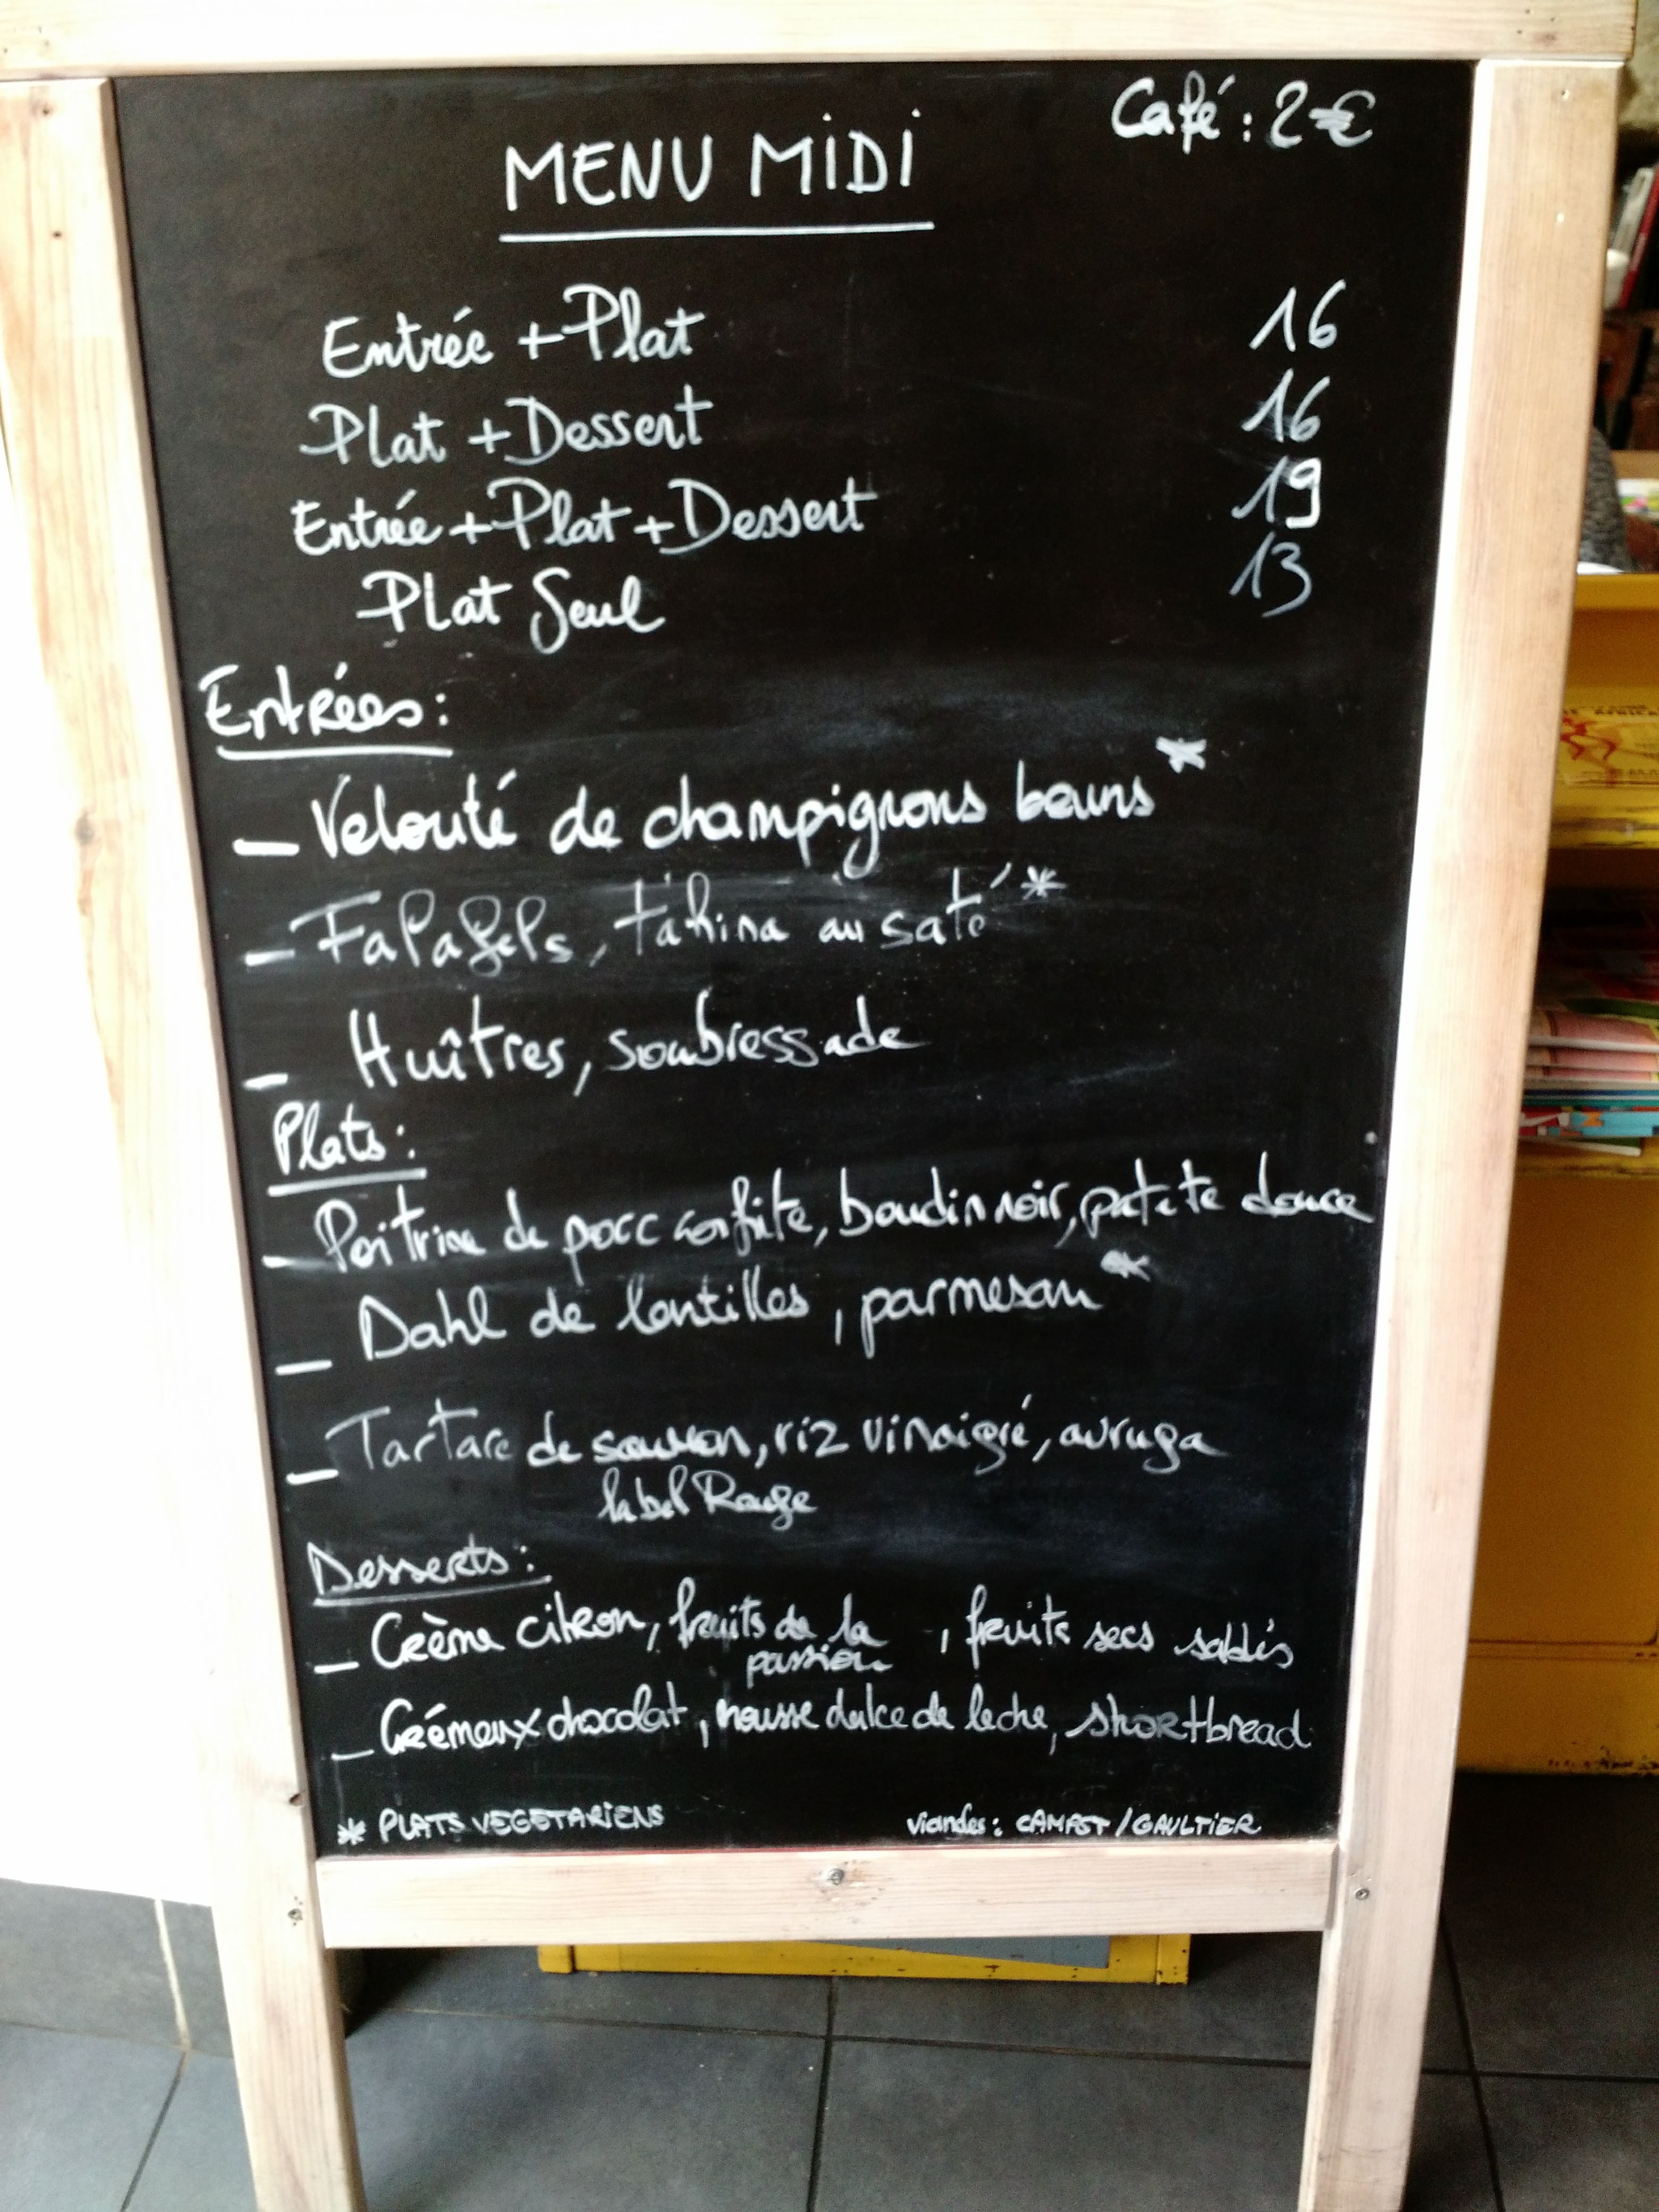 Café : 2€
MENU MiDi
Entrée + Plat 16
Plat + Dessert 16
Entrée + Plat + Dessert 19
Plat Seul 13
Entrées :
- Velouté de champignons bruns *
- Falafels, tahina au saté *
- Huîtres, soubressade
Plats :
- Poitrine de porc confite, boudin noir, patate douce
- Dahl de lentilles, parmesan *
- Tartare de saumon, riz vinaigré, avruga
label Rouge
Desserts :
- Crème citron, fruits de la passion, fruits secs sablés
- Crémeux chocolat, mousse dulce de leche, shortbread
* PLATS VEGETARIENS
viandes : /GAULTIER